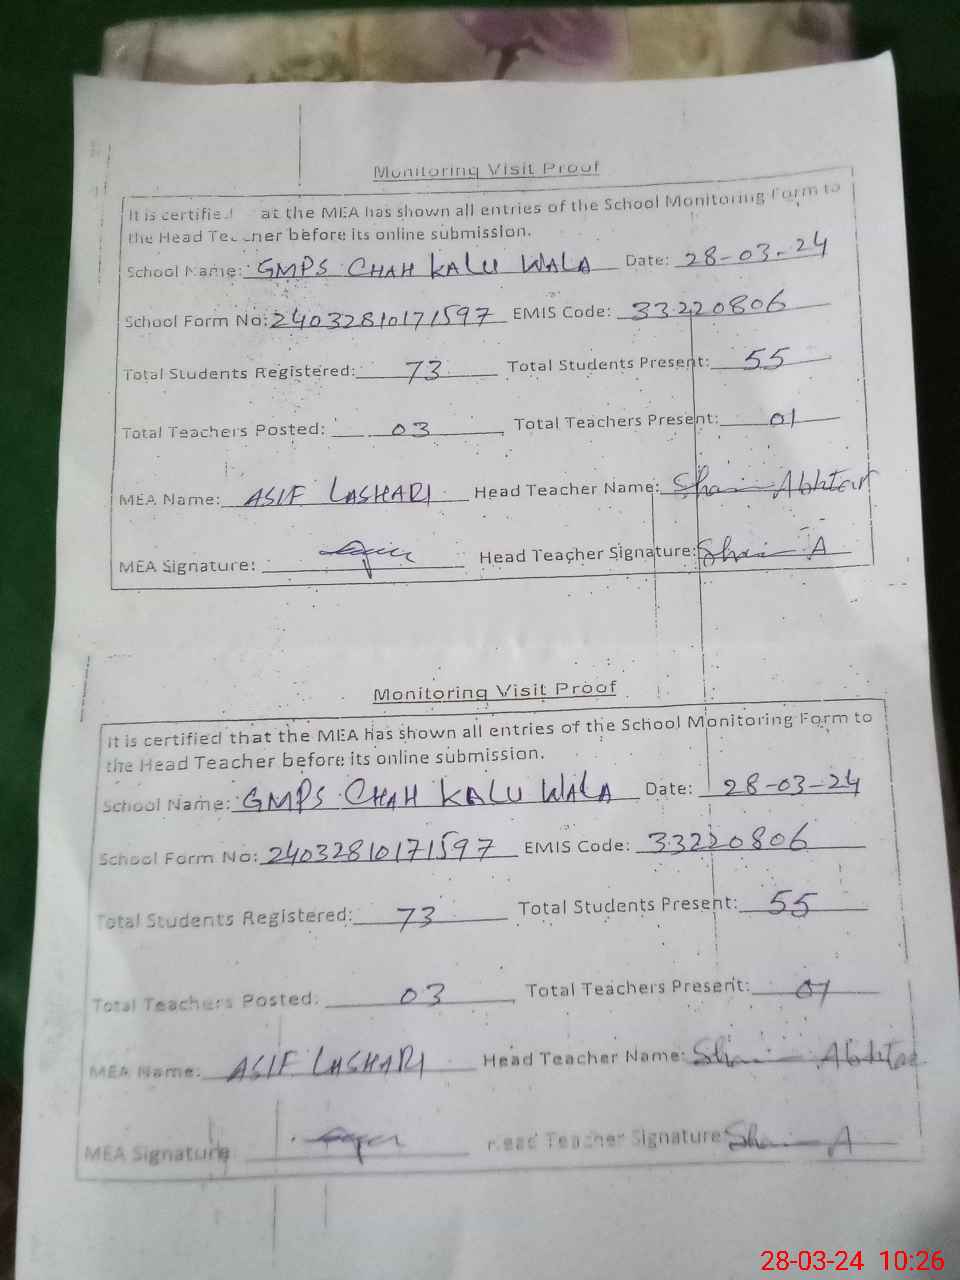 Monitoring Visit Proof
It is certified at the MEA has shown all entries of the School Monitoring Form to
the Head Teacher before its online submission.
School Name: GMPS CHAH KALU WALA Date: 28-03-24
School Form No: 2403281017 1597 EMIS Code: 33220806
Total Students Registered: 73 Total Students Present: 55
Total Teachers Posted: 03 Total Teachers Present: 01
MEA Name: ASIF LASHARI Head Teacher Name:
MEA Signature: Head Teacher Signature:
Monitoring Visit Proof
It is certified that the MEA has shown all entries of the School Monitoring Form to
the Head Teacher before its online submission.
School Name: GMPS CHAH KALU WALA Date: 28-03-24
School Form No: 24032810171597 EMIS Code: 33220806
Total Students Registered: 73 Total Students Present: 55
Total Teachers Posted: 03 Total Teachers Present: 01
MEA Name: ASIF LASHARI Head Teacher Name:
MEA Signature Head Teacher Signature:
28-03-24 10:26